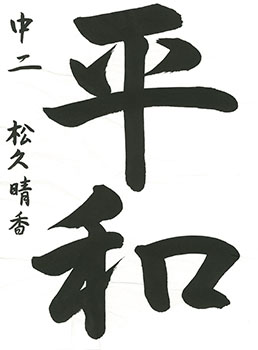 平和
中二 松久晴香